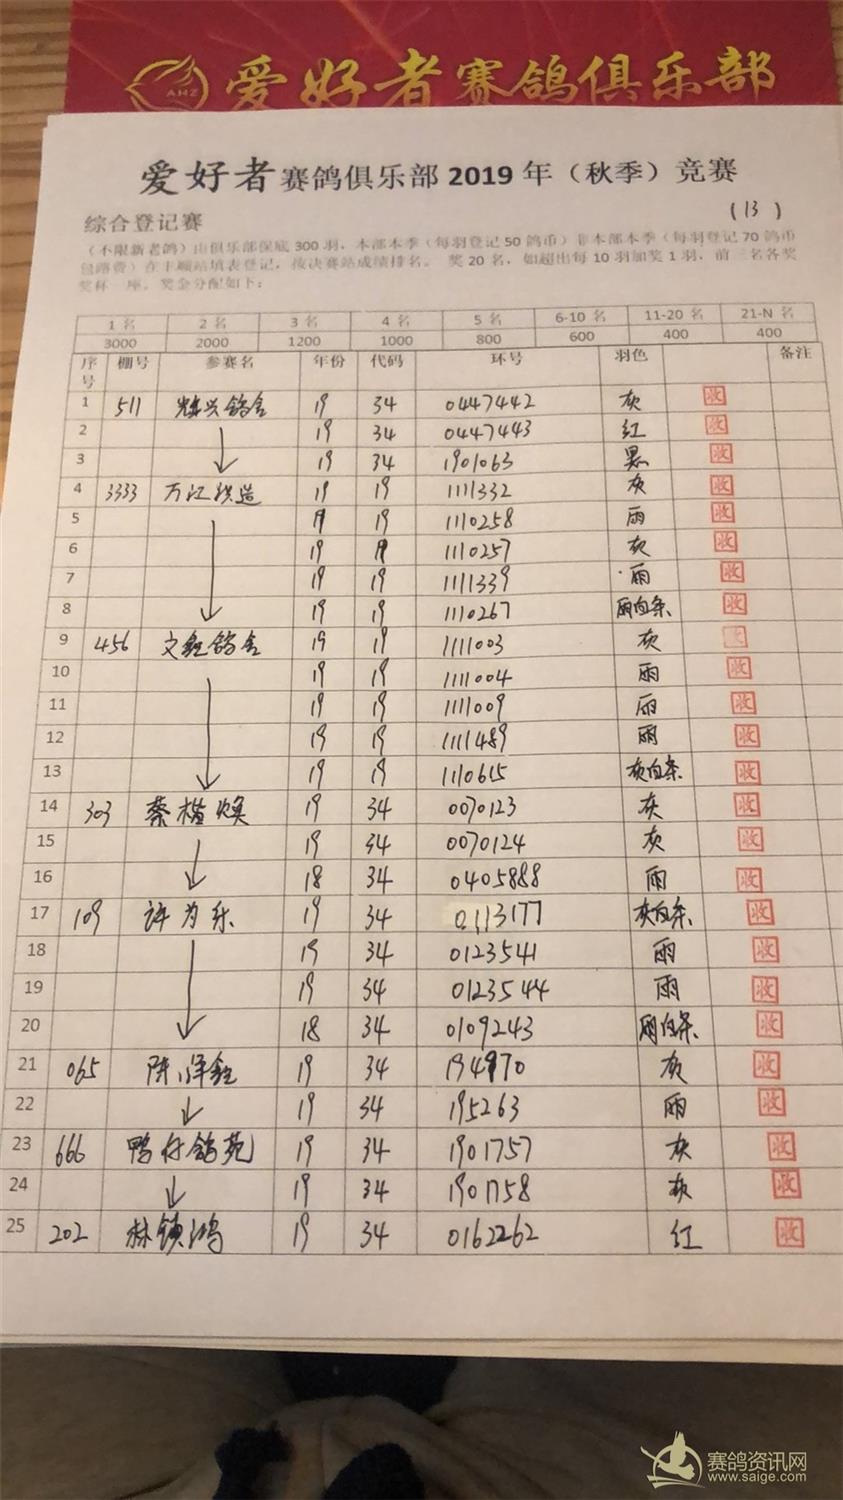 AHZ
爱好者赛鸽俱乐部
爱好者赛鸽俱乐部2019年（秋季）竞赛
(13)
综合登记赛
（不限新老鸽）由俱乐部保底300羽，本部本季（每羽登记50鸽币）非本部本季（每羽登记70鸽币
包路费）在丰顺站填表登记，按决赛站成绩排名。 奖20名，如超出每10羽加奖1羽，前三名各奖
奖杯一座。奖金分配如下：
1名 2名 3名 4名 5名 6-10名 11-20名 21-N名
3000 2000 1200 1000 800 600 400 400
序号 棚号 参赛名 年份 代码 环号 羽色 备注
1 511 兴鸽舍 19 34 0447442 灰 收
2 19 34 0447443 红 收
3 19 34 1901063 黑 收
4 3333 万江 19 19 1111332 灰 收
5 19 19 1110258 雨 收
6 19 19 1110257 灰 收
7 19 19 1111339 雨 收
8 19 19 1110267 雨白条 收
9 456 文鸽舍 19 19 1111003 灰
10 19 19 1111004 雨 收
11 19 19 1111009 雨 收
12 19 19 1111489 雨 收
13 19 19 1110615 灰白条 收
14 303 蔡楷焕 19 34 0070123 灰 收
15 19 34 0070124 灰 收
16 18 34 0405888 雨 收
17 109 许为乐 19 34 0113177 灰白条 收
18 19 34 0123541 雨 收
19 19 34 0123544 雨 收
20 18 34 0109243 雨白条 收
21 065 陈泽 19 34 194970 灰 收
22 19 34 195263 雨 收
23 666 鸭仔鸽苑 19 34 1901757 灰 收
24 19 34 1901758 灰 收
25 202 林镇鸿 19 34 0162262 红 收
赛鸽资讯网
www.saige.com